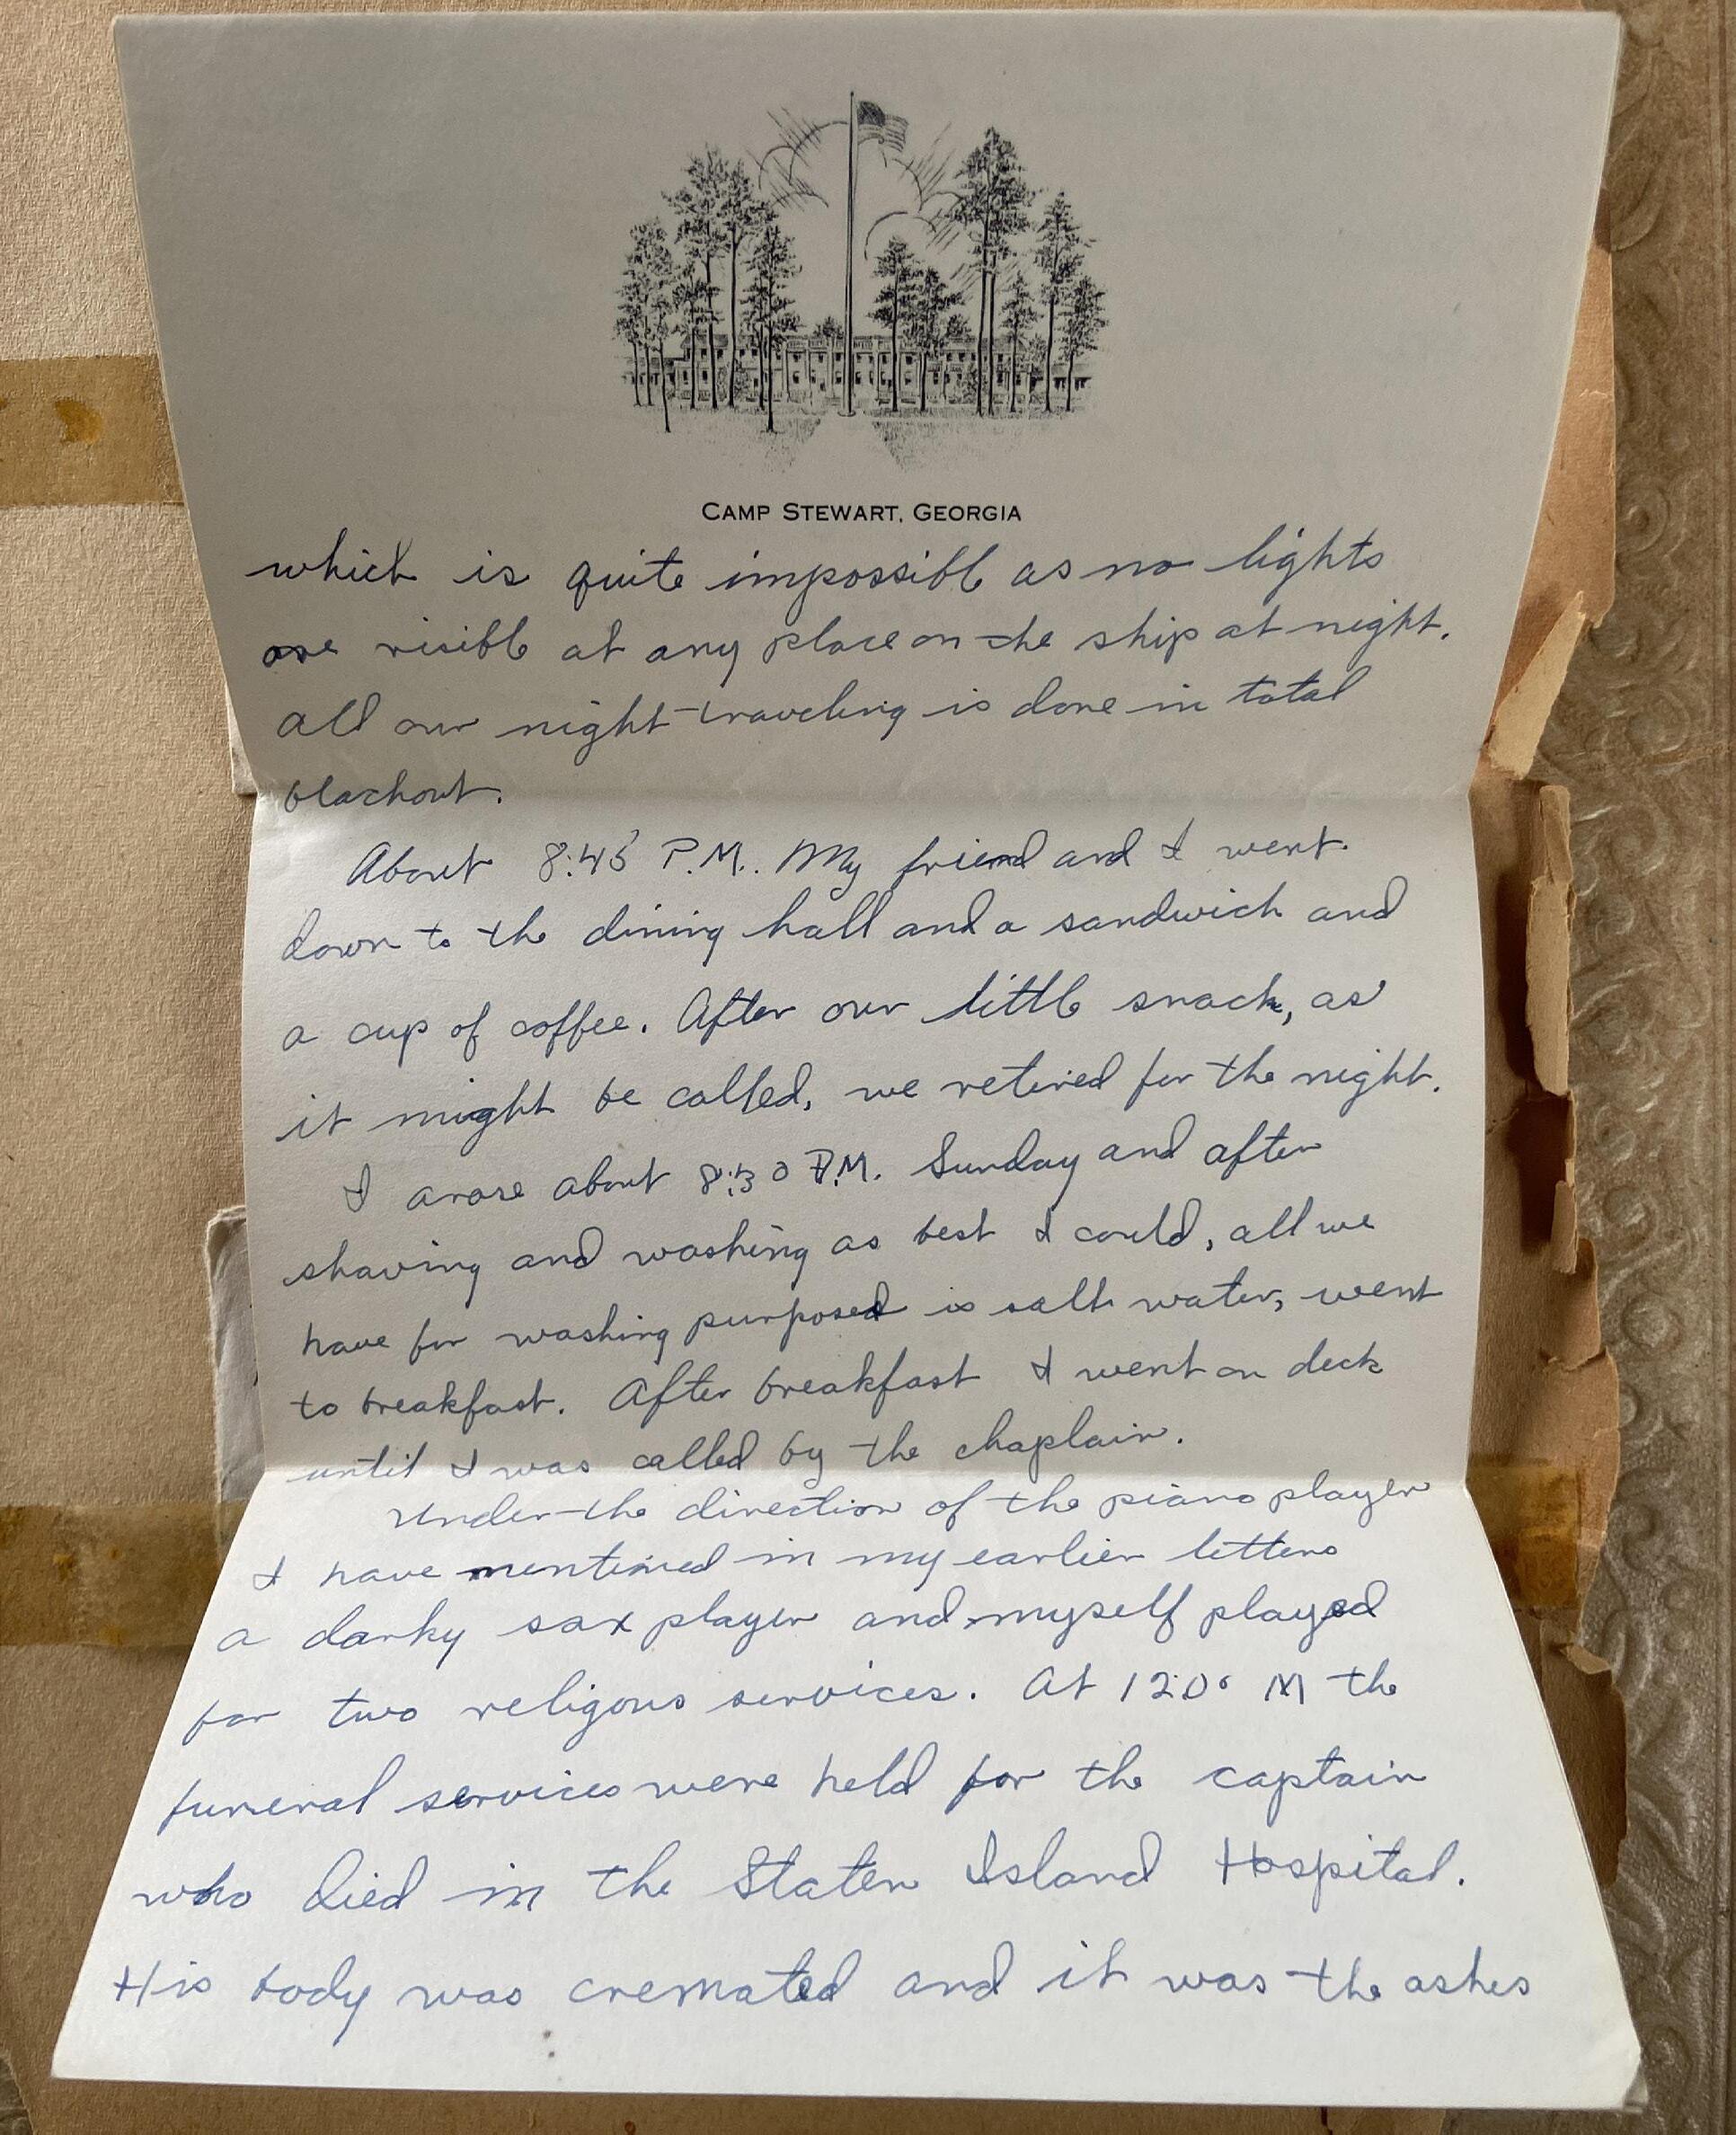 CAMP STEWART, GEORGIA
which is quite impossible as no lights
are visible at any place on the ship at night.
All our night traveling is done in total
blackout.
About 8:45 P.M. My friend and I went
down to the dining hall and a sandwich and
a cup of coffee. After our little snack, as
it might be called, we retired for the night.
I arose about 8:30 P.M. Sunday and after
shaving and washing as best I could, all we
have for washing purposed is salt water, went
to breakfast. After breakfast I went on deck
until I was called by the chaplain.
Under the direction of the piano player
I have mentioned in my earlier letters
a darky sax player and myself played
for two religous services. At 12:00 M the
funeral services were held for the captain
who died in the Staten Island Hospital.
His body was cremated and it was the ashes